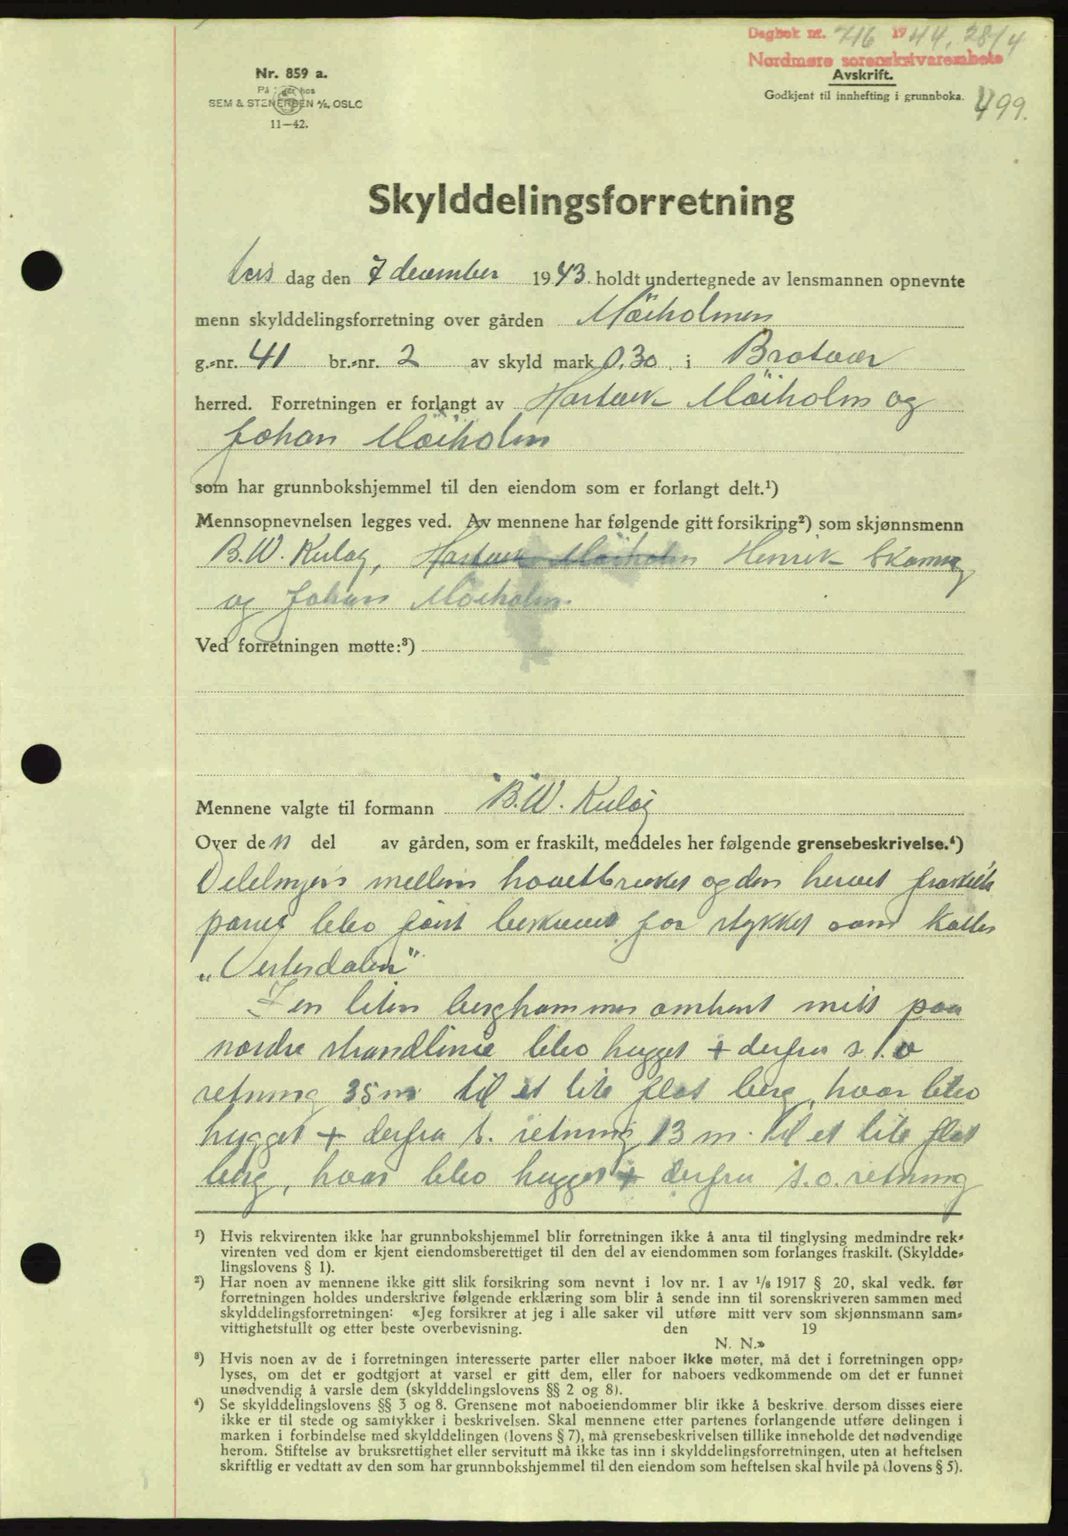 Dagbok nr. 716 1944, 28/4
Nordmøre sorenskrivarembete
Avskrift.
Godkjent til innhefting i grunnboka.
499.
Nr. 859 a.
SEM & STENERSEN A/S, OSLO
11—42.
Skylddelingsforretning
tors dag den 7 december 1943. holdt undertegnede av lensmannen opnevnte
menn skylddelingsforretning over gården Mæiholmen
g.-nr. 41 br.-nr. 2 av skyld mark 0.30 i Bratvær
herred. Forretningen er forlangt av Mæiholm og
Johan Mæiholm
som har grunnbokshjemmel til den eiendom som er forlangt delt.¹)
Mennsopnevnelsen legges ved. Av mennene har følgende gitt forsikring²) som skjønnsmenn
B.W. Kuløy, Henrik
og Johan Mæiholm
Ved forretningen møtte:³)
Mennene valgte til formann B.W. Kuløy
Over den del av gården, som er fraskilt, meddeles her følgende grensebeskrivelse.⁴)
mellem og den herved fraskilte
blev først beskrevet for stykket som kalles
„Vestesdalen"
I en liten berghammer omtrent mitt paa
nordre strandlinie blev hugget + derfra s.t.o
retning 35 m til et lite flat berg, hvor blev
hugget + derfra s. retning 13 m. til et lite flat
berg, hvor blev hugget + derfra s.o. retning
¹) Hvis rekvirenten ikke har grunnbokshjemmel blir forretningen ikke å anta til tinglysing medmindre rek-
virenten ved dom er kjent eiendomsberettiget til den del av eiendommen som forlanges fraskilt. (Skyldde-
lingslovens § 1).
²) Har noen av mennene ikke gitt slik forsikring som nevnt i lov nr. 1 av ¹/₆ 1917 § 20, skal vedk. før
forretningen holdes underskrive følgende erklæring som blir å sende inn til sorenskriveren sammen med
skylddelingsforretningen: «Jeg forsikrer at jeg i alle saker vil utføre mitt verv som skjønnsmann sam-
vittighetsfullt og etter beste overbevisning. den 19
N. N.»
³) Hvis noen av de i forretningen interesserte parter eller naboer ikke møter, må det i forretningen opp-
lyses, om det er godtgjort at varsel er gitt dem, eller for naboers vedkommende om det er funnet
unødvendig å varsle dem (skylddelingslovens §§ 2 og 8).
⁴) Se skylddelingslovens §§ 3 og 8. Grensene mot naboeiendommer blir ikke å beskrive dersom disses eiere
ikke er til stede og samtykker i beskrivelsen. Skal mennene etter partenes forlangende utføre delingen i
marken i forbindelse med skylddelingen (lovens § 7), må grensebeskrivelsen tillike inneholde det nødvendige
herom. Stiftelse av bruksrettighet eller servitutt må ikke tas inn i skylddelingsforretningen, uten at heftelsen
skriftlig er vedtatt av den som har grunnbokshjemmel til den eiendom som heftelsen skal hvile på (lovens § 5).